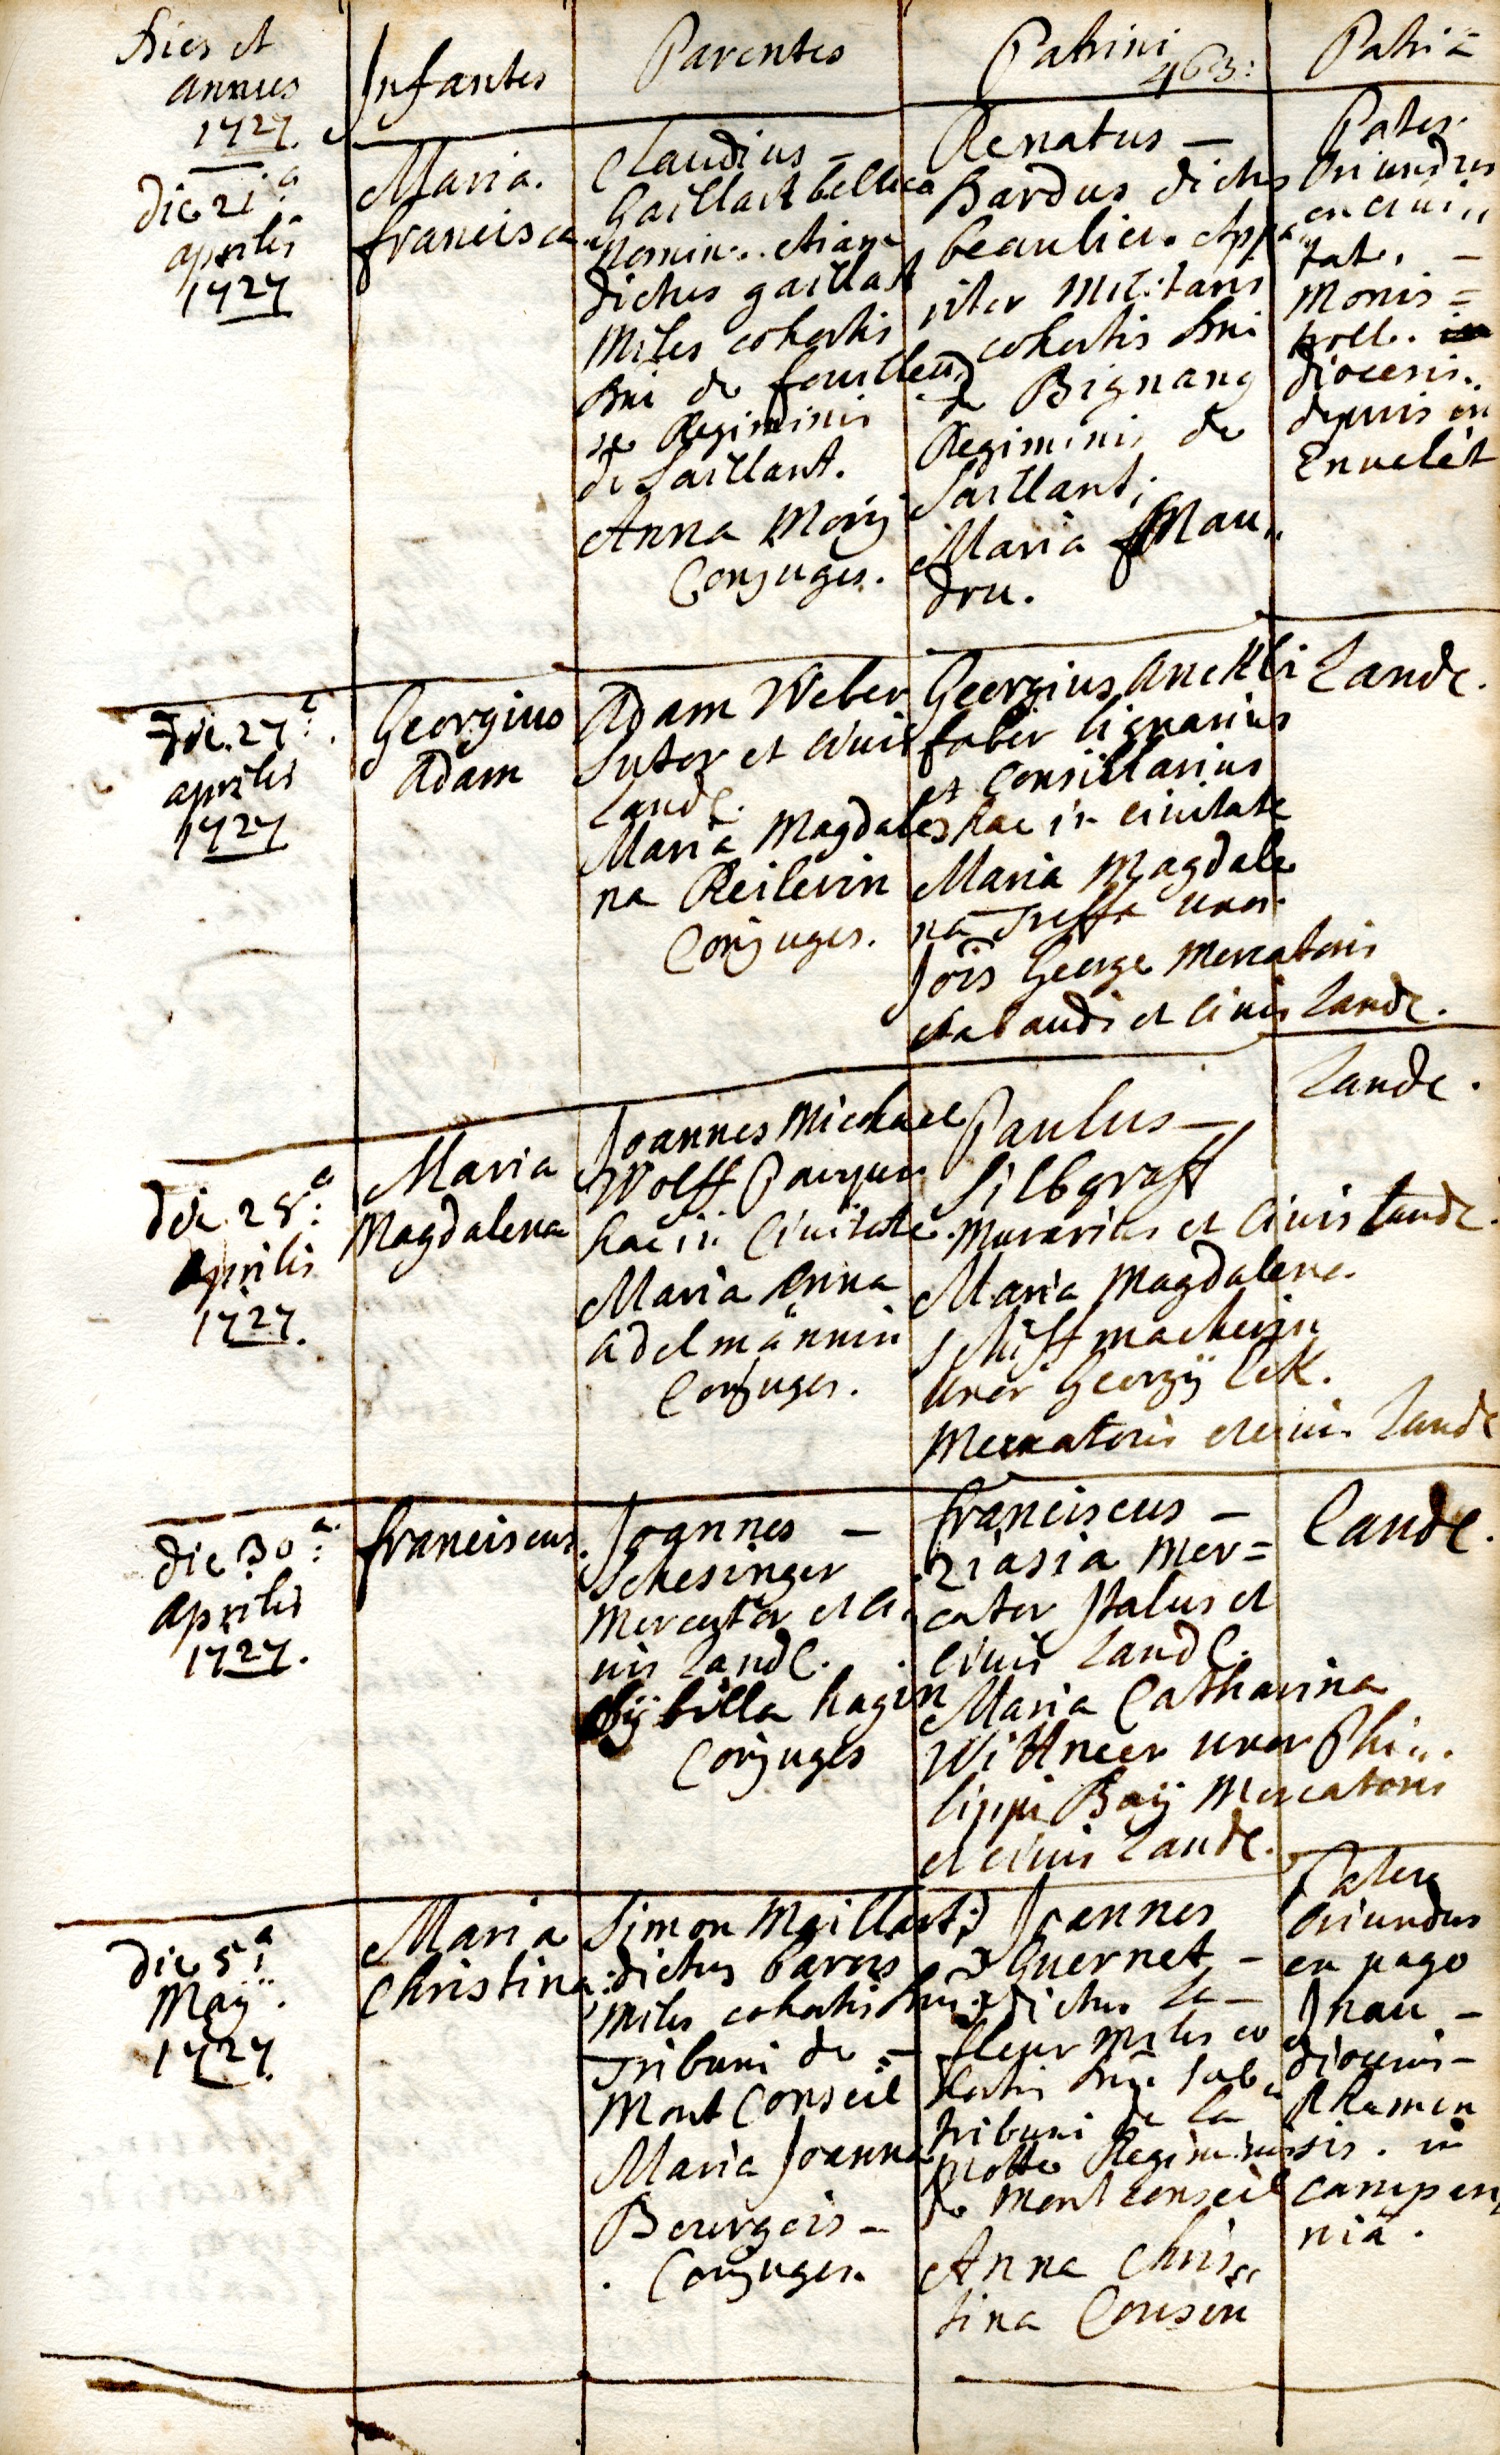 Dies et
annus
1727.
Infantes
Parentes
Patrini
463:
Patria
die 21a
aprilis
1727
Maria.
francisca
Claudius –
Gaillart bellico
Nomin.. etiam
dictus gaillart
Miles cohortis
Dni de
Regiminis
de Saillant.
Anna Morij
Conjuges.
Renatus –
Bardus dictus
beaulieu. Appa„
riter Militaris
cohortis Dni
de Bignang
Regiminis de
Saillant;
Maria Mau„
dru.
Pater
Oriundus
ex civi„
tate. –
Monis =
troll.
diocesis..
depuis en
Envelét
Die. 27a:
aprilis
1727
Georgius
Adam
Adam Weber
Sutor et civis
Landc.
Maria Magdale„
na Reilerin
Conjuges.
Georgius Anckli
faber lignarius
et Consiliarius
hac in civitate
Maria Magdale
na Treffa uxor
Jois George Mercatoris
et civis Landc.
Landc.
die. 28a:
Aprilis
1727.
Maria
Magdalena
Joannes Michael
Wolff
hac in Civitate.
Maria Anna
Adelmännin
Conjuges.
Paulus –
Silbgraff
Murarius et Civis Landc.
Maria Magdalena.
Schiffmacherin
Uxor Georgij Cek.
Mercatoris et civis. Landc
Landc.
die 30a:
Aprilis
1727.
franciscus.
Joannes –
Schesinger
Mercator et ci„
vis Landc.
Sÿbilla hagin
Conjuges
franciscus –
riasia Mer=
cator Italus et
civis Landc.
Maria Catharina
Wittneer uxor Phi„
lippi Baij Mercatoris
et civis Landc.
Landc.
die 5a:
Maij.
1727.
Maria
Christina.
Simon Maillart:
dictus barois
miles cohortis Dni
Tribuni de –
Mont Conseil
Maria Joanna
Bourgois –
Conjuges.
Joannes
Guernet –
dictus La –
fleur miles co
hortis Dni sub„
tribuni de la
Motte Regiminis
de Montconseil
Anna Chris„
tina Cousin
Pater
Oriundus
ex pago
Inau –
diocesis –
Rhemen
sis. in
campan„
nia.